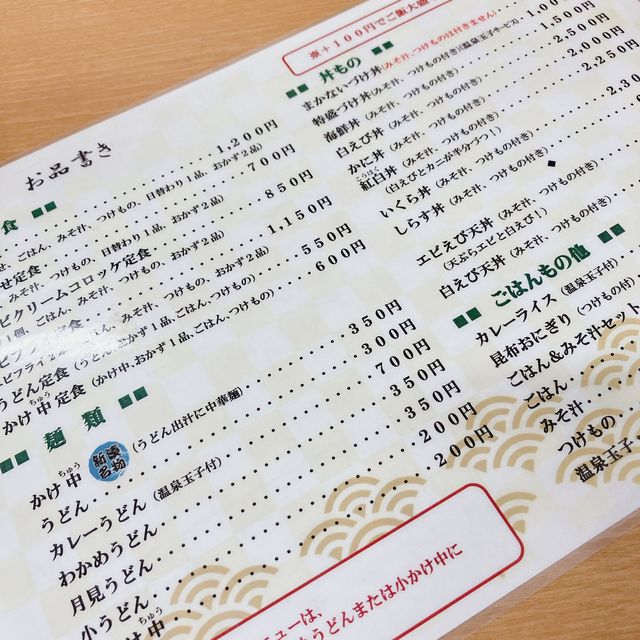 お品書き
食
1,200円
せ、ごはん、みそ汁、つけもの、日替わり1品、おかず2品)
700円
せ定食
みそ汁、つけもの、日替わり1品、おかず2品)
850円
ビクリームコロッケ定食
1個、ごはん、みそ汁、つけもの、おかず2品)
1,150円
550円
うどん定食(うどん、おかず1品、ごはん、つけもの)
600円
かけ中定食(かけ中、おかず1品、ごはん、つけもの)
ちゅう
麺類
かけ中(うどん出汁に中華麺) 350円
ちゅう
新湊名物
うどん 300円
カレーうどん(温泉玉子付) 700円
わかめうどん 350円
月見うどん 350円
小うどん 200円
中 200円
ちゅう
ニューは、
うどんまたは小かけ中に
※+100円でご飯大盛
丼もの
まかないづけ丼(みそ汁、つけものは付きません)
特盛づけ丼(みそ汁、つけもの付き)(温泉玉子サービス)
1,000円
海鮮丼(みそ汁、つけもの付き)
1,500円
白えび丼(みそ汁、つけもの付き)
2,000円
かに丼(みそ汁、つけもの付き)
2,250円
紅白丼(みそ汁、つけもの付き)
2,250円
(白えびとカニが半分づつ!)
いくら丼(みそ汁、つけもの付き)
しらす丼(みそ汁、つけもの付き)
エビえび天丼(みそ汁、つけもの付き)
(天ぷらエビと白えび!)
白えび天丼(みそ汁、つけもの付き)
ごはんもの他
カレーライス(温泉玉子付)
昆布おにぎり(つけもの付)
ごはん&みそ汁セット
ごはん
みそ汁
つけもの
温泉玉子